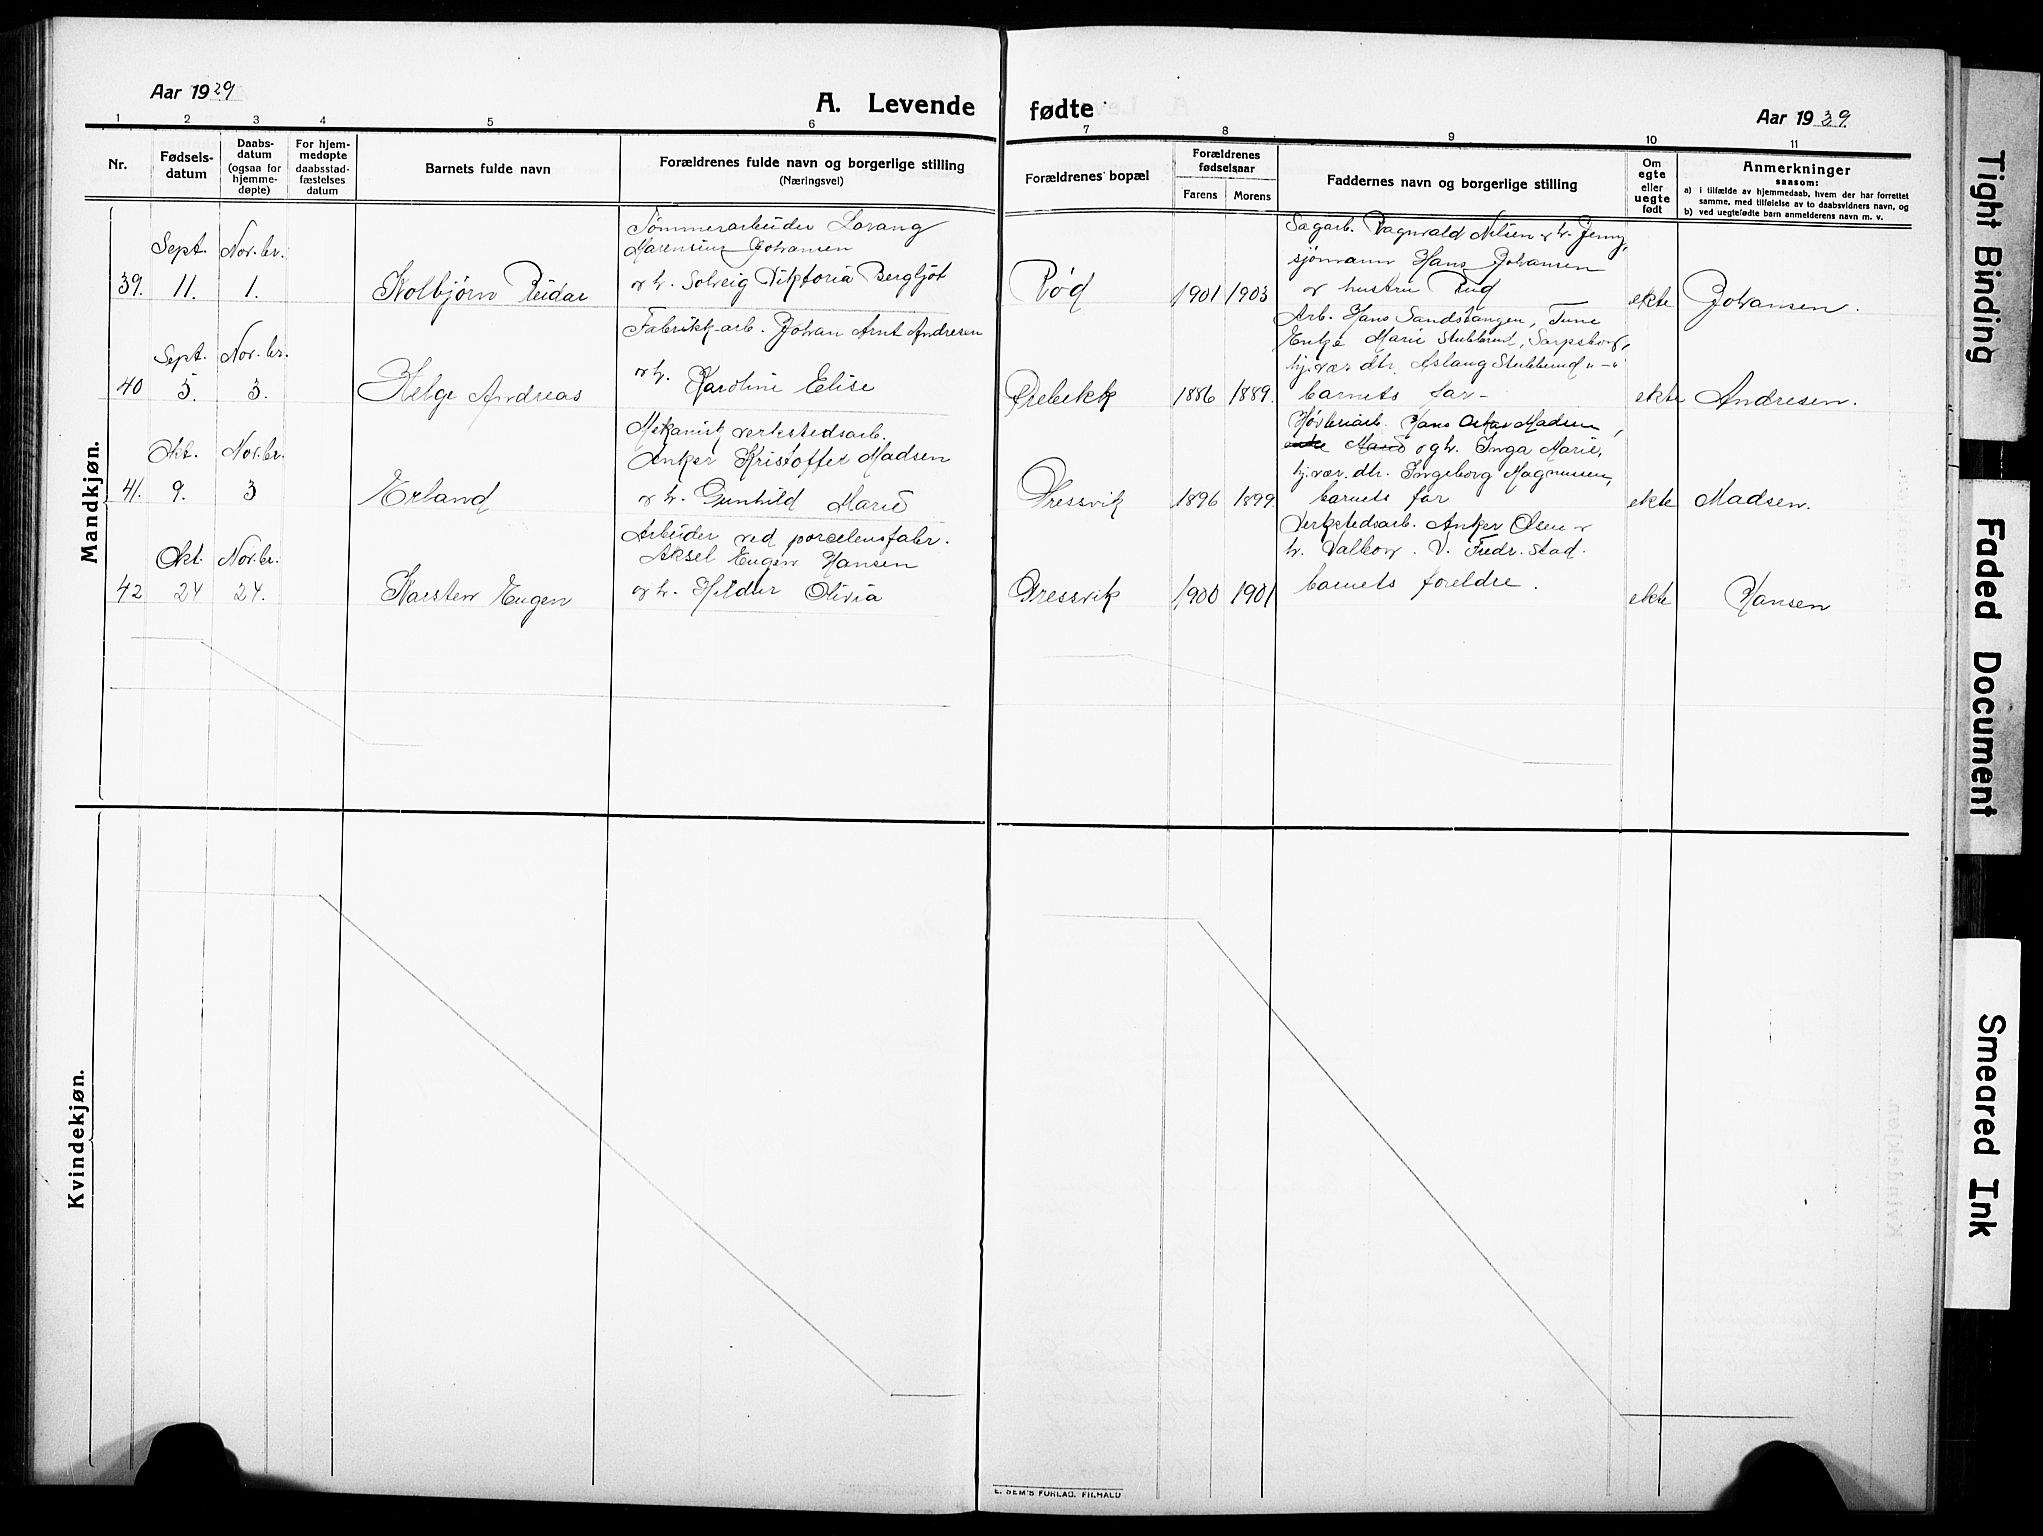 Aar 1929
A. Levende fødte
Aar 1929
1 2 3 4 5 6 7 8 9 10 11
Nr.
Fødsels-
datum
Daabs-
datum
(ogsaa for
hjemme-
døpte)
For hjem-
medøpte
daabsstad-
fæstelses
datum
Barnets fulde navn
Forældrenes fulde navn og borgerlige stilling
(Næringsvei)
Forældrenes bopæl
Forældrenes
fødselsaar
Farens Morens
Faddernes navn og borgerlige stilling
Om
egte
eller
uegte
født
Anmerkninger
saasom:
a) i tilfælde av hjemmedaab, hvem der har forrettet
samme, med tilføielse av to daabsvidners navn, og
b) ved uegtefødte barn anmelderens navn m. v.
Mandkjøn.
39. Sept. 11. Nov.br. 1.
Kolbjørn Reidar
Tømmerarbeider Lorang
Marensius Johansen
o h. Solveig Viktoria Bergljot
Rød
1901 1903
Sagarb. Ragnvald Nilsen o h. Jenny,
sjømann Hans Johansen
o hustru Rud
ekte
Johansen.
40 Sept. 5. Nov.br. 3.
Helge Andreas
Fabrikk-arb. Johan Arnt Andresen
o h. Karoline Elise
Ørebekk
1886 1889.
Arb. Hans Sandstangen, Tune
Enke Marie Stubberud, Sarpsborg,
hj.vær. dtr. Aslaug Stubberud " — "
barnets far -
ekte
Andresen.
41. Okt. 9. Nov.br. 3
Erland
Mekanisk verkstedsarb.
Anker Kristoffer Madsen
o h. Gunhild Marie
Gressvik
1896 1899.
Høvleriarb. Hans Oskar Madsen,
o g h. Inga Marie,
hj.vær. dtr. Ingeborg Magnussen,
barnets far
ekte
Madsen.
42 Okt. 24 Nov.br. 24.
Karsten Eugen
Arbeider ved porcelensfabr.
Aksel Eugen Hansen
o h. Hildur Olivia
Gressvik
1900 1901
Verkstedsarb. Anker Olsen o
h. Valbor. V. Fredr.stad.
barnets foreldre.
ekte
Hansen
Kvindekjøn.
E. SEM'S FORLAG. FR.HALD
Tight Binding
Faded Document
Smeared Ink